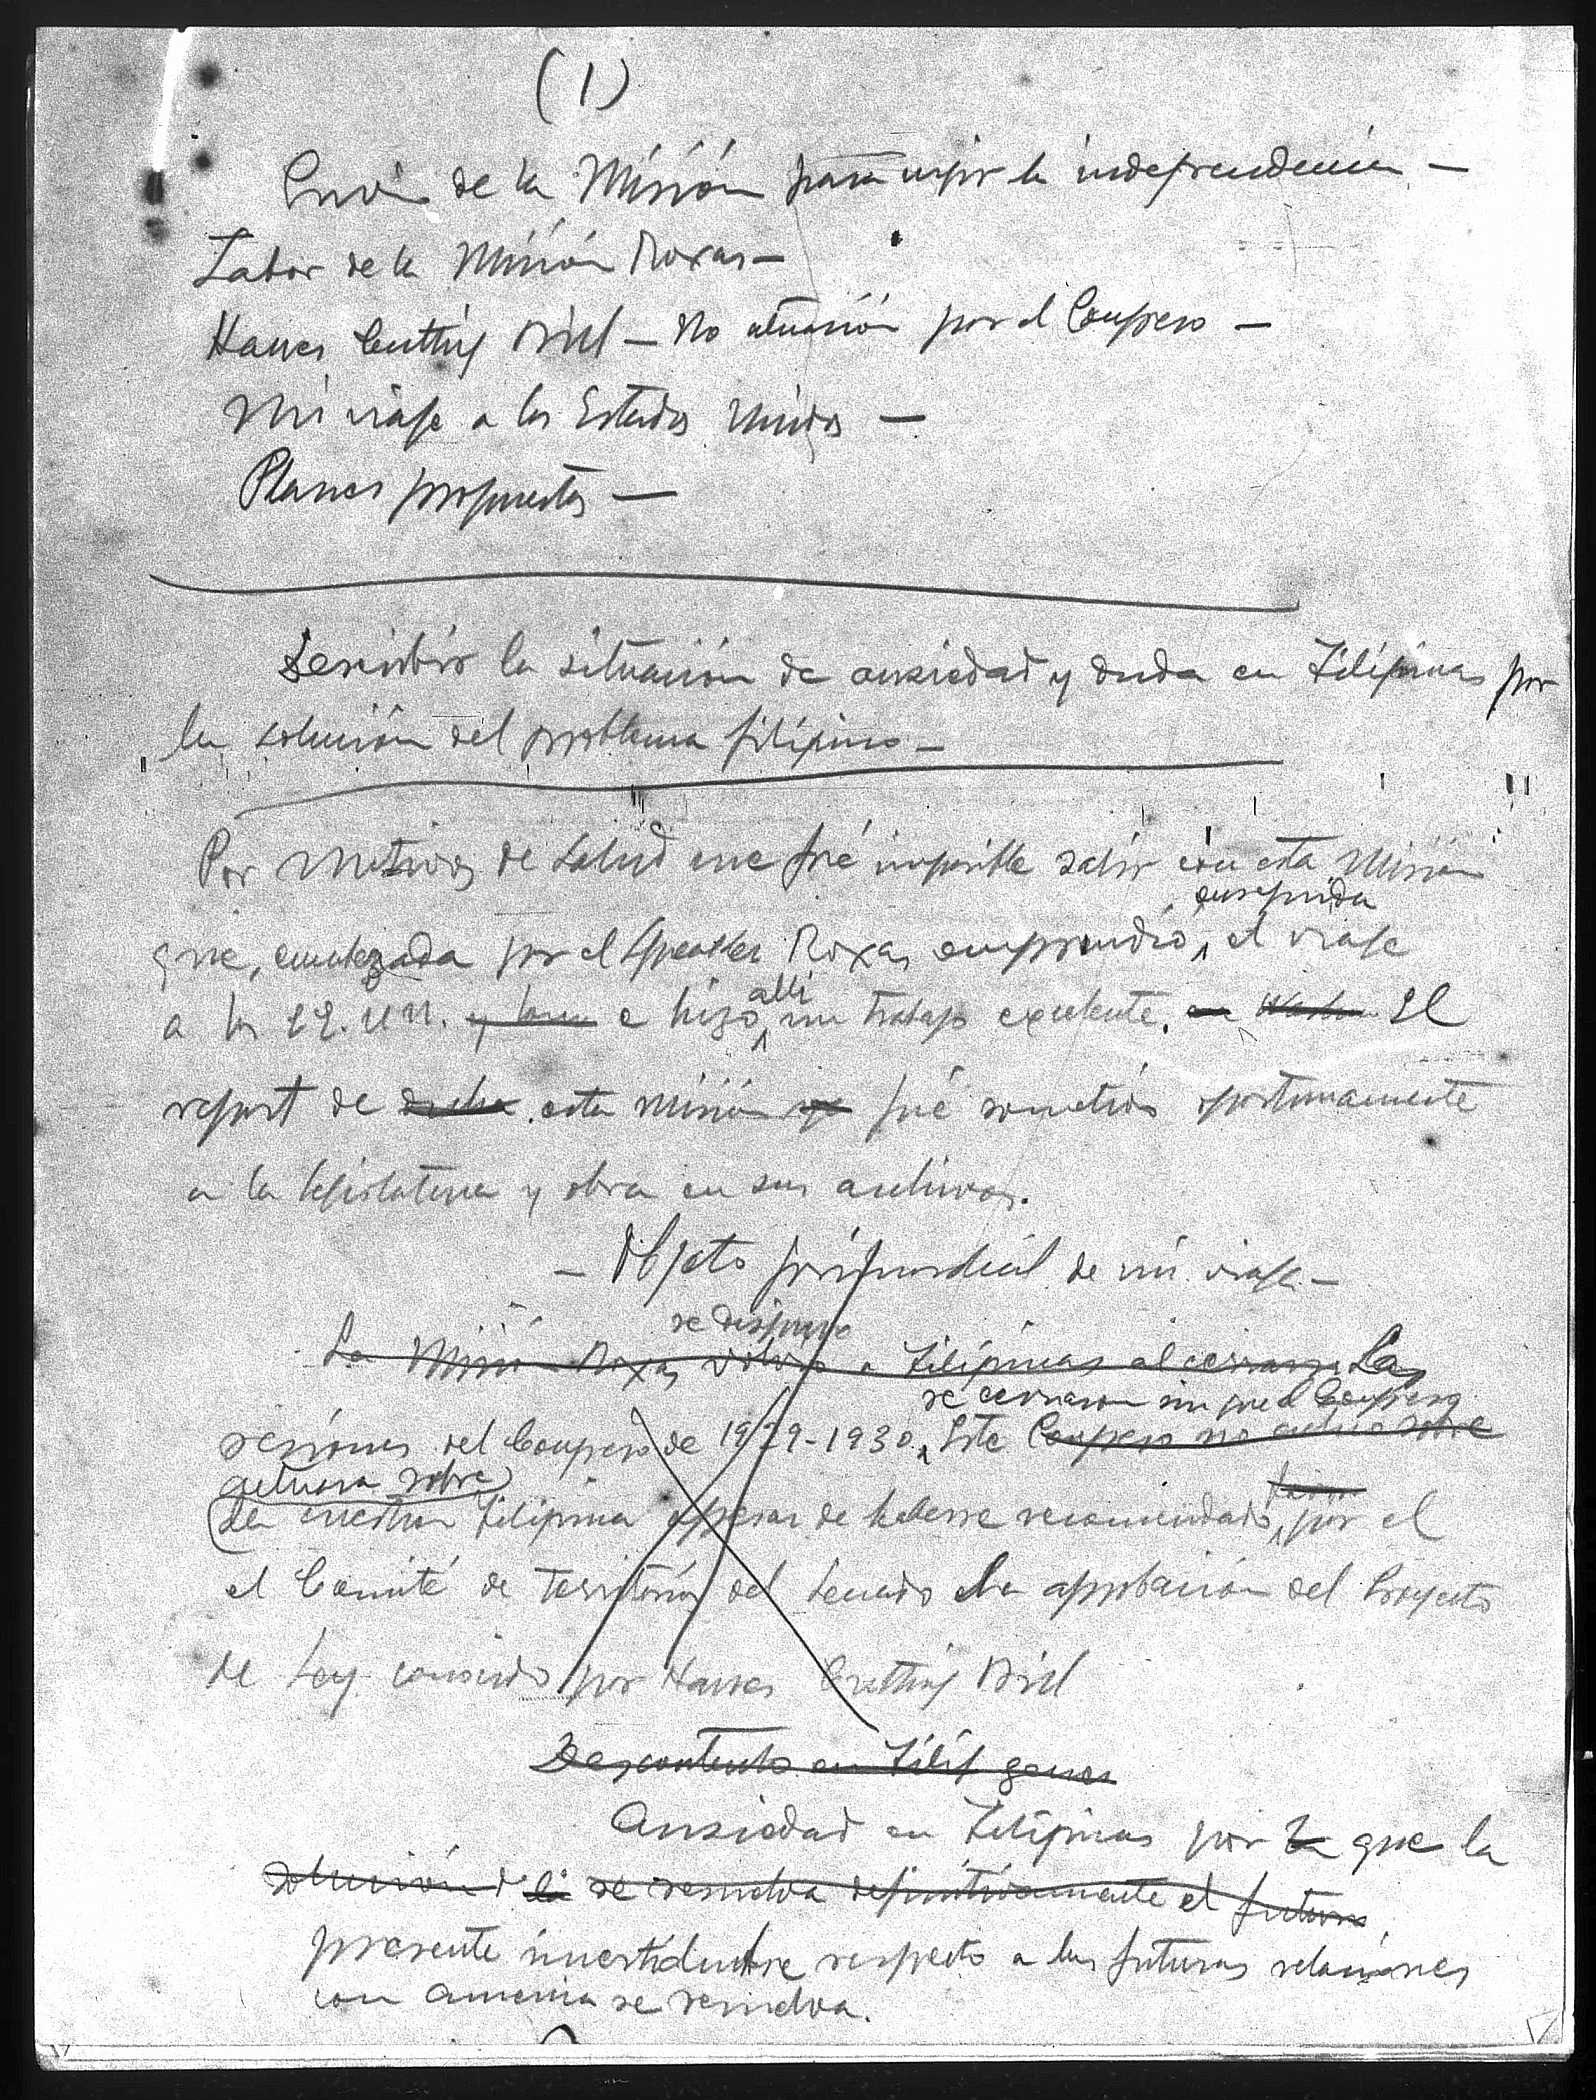 (1)
Envio de la Misión para urgir la independencia —
Labor de la Misión Roxas —
Hawes Cutting Bill — No actuación por el Congreso —
Mi viaje a los Estados Unidos —
Planes propuestos —
Describir la situación de ansiedad y duda en Filipinas por
la solución del problema filipino —
Por motivos de salud me fué imposible salir con esta Misión
enseguida
que, encabezada por el Speaker Roxas emprendió, el viaje
alli
a los EE. UU. e hizo un trabajo excelente. El
report de dicha esta Misión fué sometido oportunamente
a la legislatura y obra en sus archivos.
— Objeto primordial de mi viaje —
se dispuso
La Misión Roxas volvió a Filipinas al cerrarse Las
se cerraron sin que el Congreso
sesiones del Congreso de 1929-1930. Este Congreso no actuó sobre
actuara sobre
la cuestion Filipina apesar de haberse recomendado por el
el Comité de Territorios del Senado la aprobación del Proyecto
de Ley conocido por Hawes Cutting Bill
Descontento en Filip
Ansiedad en Filipinas por que la
solución de se resuelva definitivamente el futuro
presente incertidumbre respecto a las futuras relaciones
con America se resuelva.